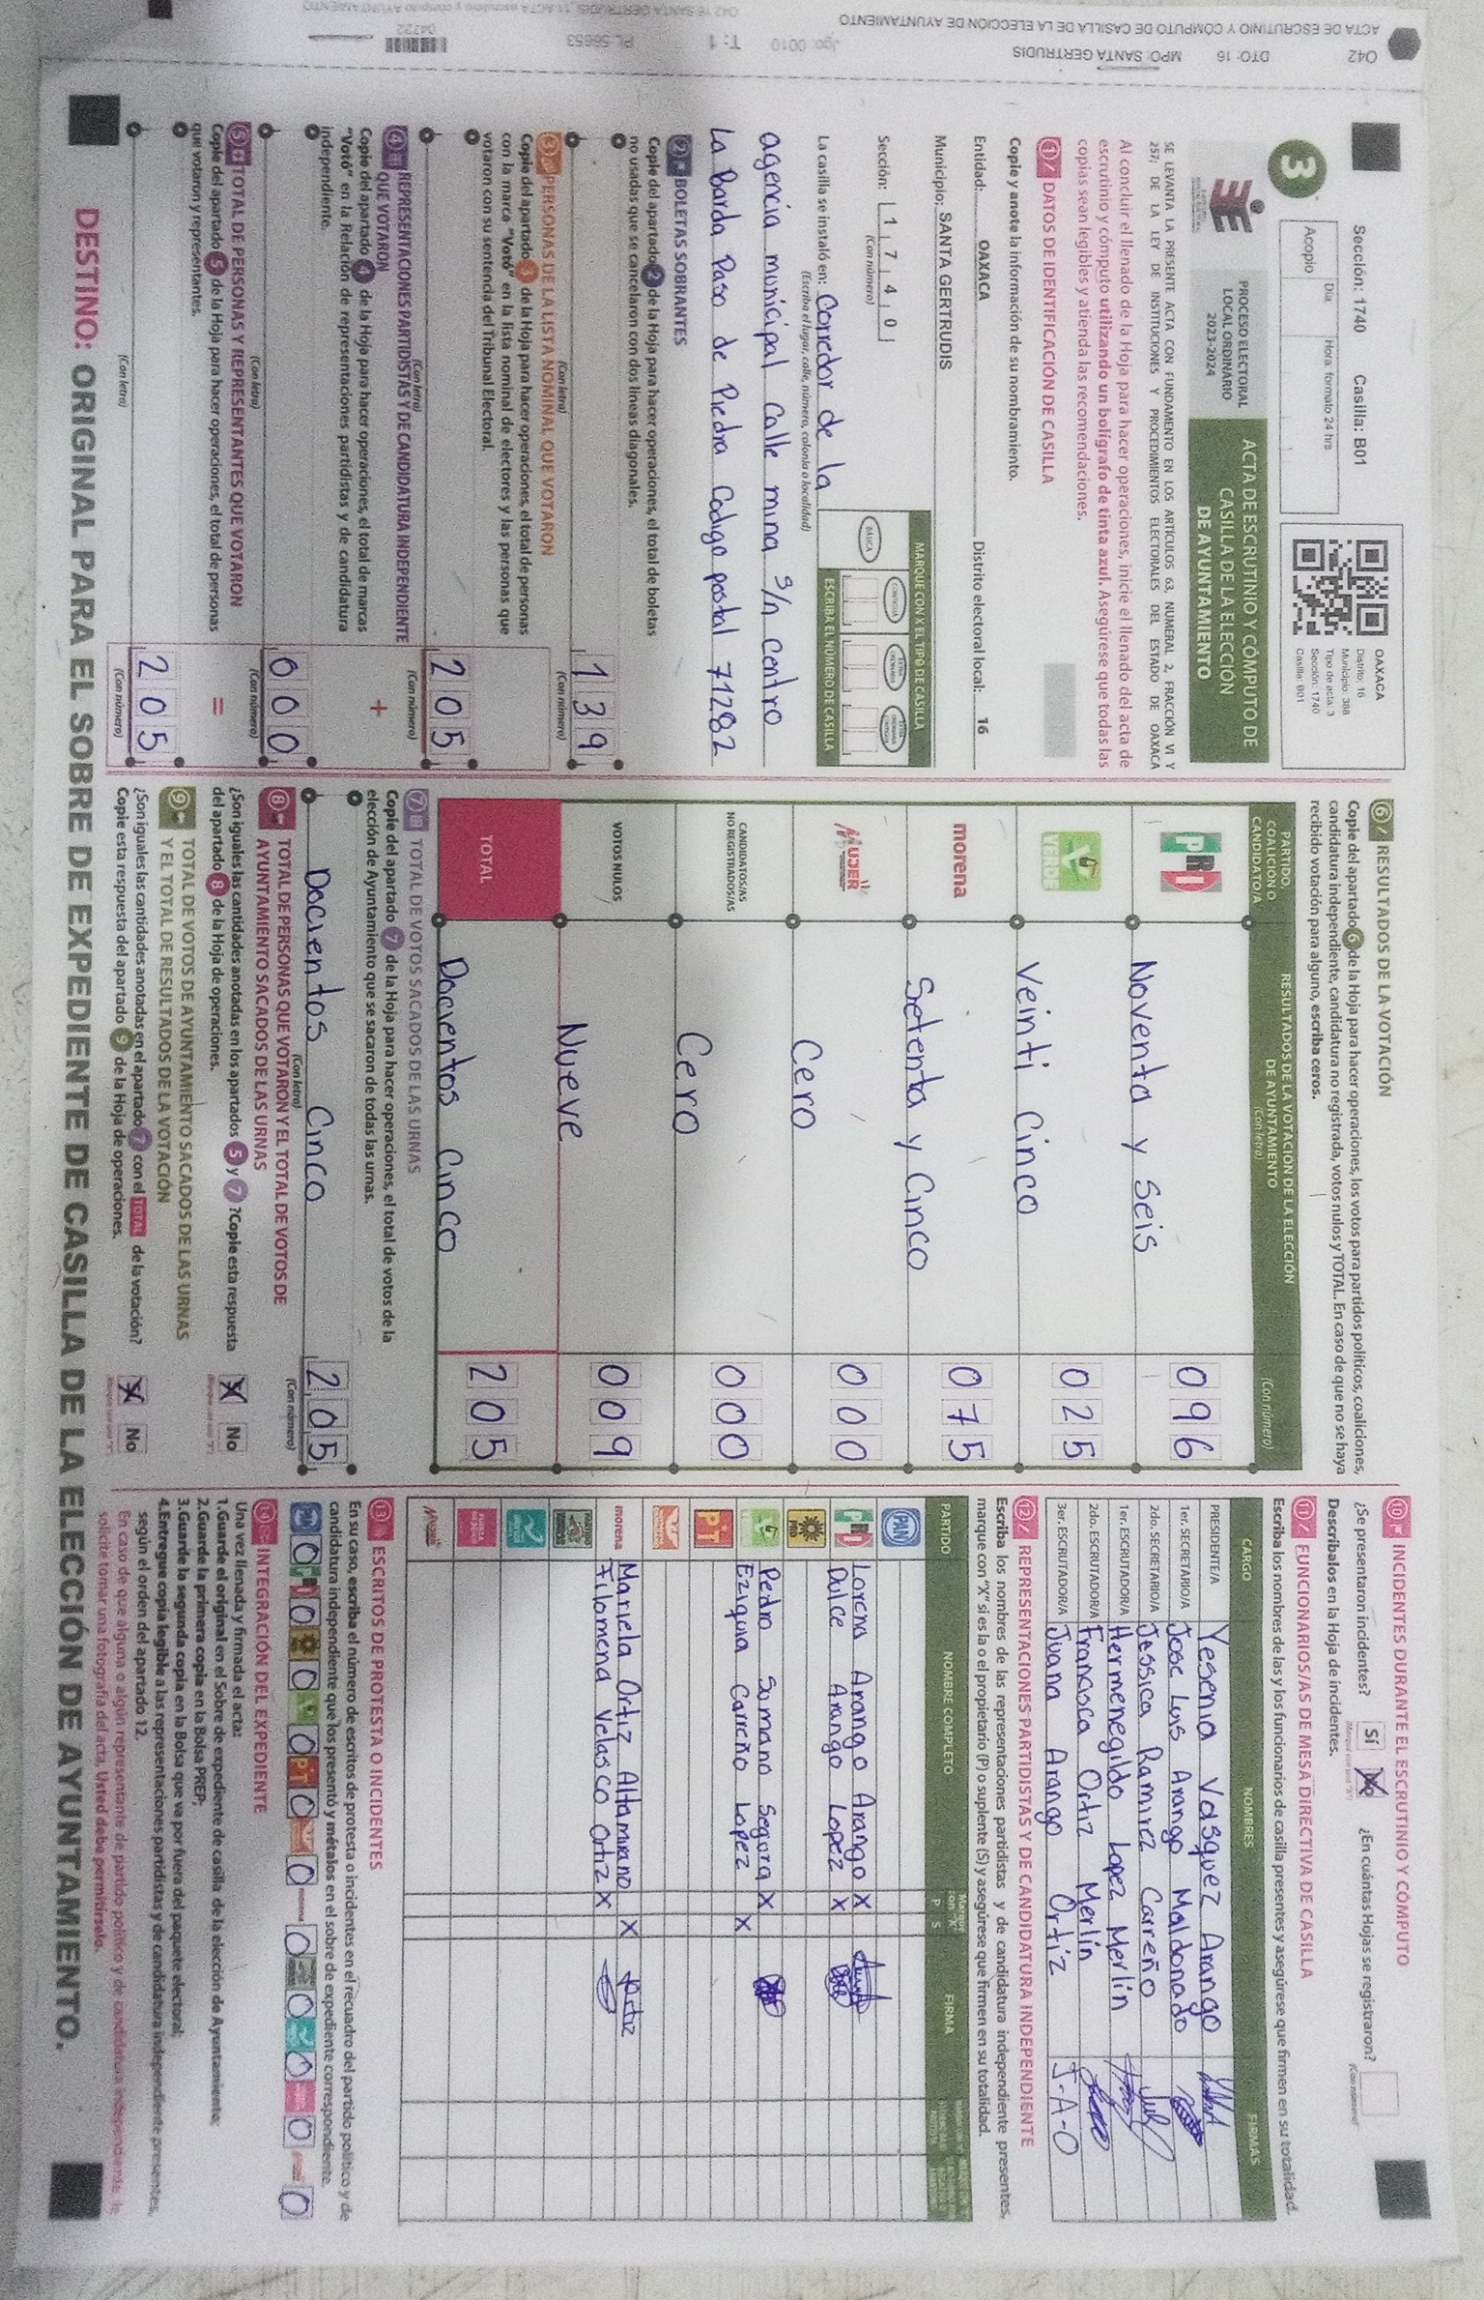 Sección: 1740 Casilla: B01
3
Día Hora formato 24 hrs
Acopio
OAXACA
Distrito: 16
Municipio: 388
Tipo de acta: 3
Sección: 1740
Casilla: B01
PROCESO ELECTORAL
LOCAL ORDINARIO
2023-2024
ACTA DE ESCRUTINIO Y CÓMPUTO DE
CASILLA DE LA ELECCIÓN
DE AYUNTAMIENTO
SE LEVANTA LA PRESENTE ACTA CON FUNDAMENTO EN LOS ARTÍCULOS 63, NUMERAL 2, FRACCIÓN VI Y
257; DE LA LEY DE INSTITUCIONES Y PROCEDIMIENTOS ELECTORALES DEL ESTADO DE OAXACA
Al concluir el llenado de la Hoja para hacer operaciones, inicie el llenado del acta de
escrutinio y cómputo utilizando un bolígrafo de tinta azul. Asegúrese que todas las
copias sean legibles y atienda las recomendaciones.
1 DATOS DE IDENTIFICACIÓN DE CASILLA
Copie y anote la información de su nombramiento.
Entidad: OAXACA Distrito electoral local: 16
Municipio: SANTA GERTRUDIS
Sección: 1 7 4 0
(Con número)
MARQUE CON X EL TIPO DE CASILLA
BÁSICA
ESCRIBA EL NÚMERO DE CASILLA
La casilla se instaló en: Corredor de la
(Escriba el lugar, calle, número, colonia o localidad)
agencia municipal calle mina s/n centro
La Barda Paso de Piedra Codigo postal 71282
2 BOLETAS SOBRANTES
Copie del apartado 2 de la Hoja para hacer operaciones, el total de boletas
no usadas que se cancelaron con dos líneas diagonales.
139
(Con letra) (Con número)
3 PERSONAS DE LA LISTA NOMINAL QUE VOTARON
Copie del apartado 3 de la Hoja para hacer operaciones, el total de personas
con la marca "Votó" en la lista nominal de electores y las personas que
votaron con su sentencia del Tribunal Electoral.
205
(Con letra) (Con número)
4 REPRESENTACIONES PARTIDISTAS Y DE CANDIDATURA INDEPENDIENTE
QUE VOTARON
Copie del apartado 4 de la Hoja para hacer operaciones, el total de marcas
"Votó" en la Relación de representaciones partidistas y de candidatura
independiente.
+
000
(Con letra) (Con número)
5 TOTAL DE PERSONAS Y REPRESENTANTES QUE VOTARON
Copie del apartado 5 de la Hoja para hacer operaciones, el total de personas
que votaron y representantes.
=
205
(Con letra) (Con número)
6 RESULTADOS DE LA VOTACIÓN
Copie del apartado 6 de la Hoja para hacer operaciones, los votos para partidos políticos, coaliciones,
candidatura independiente, candidatura no registrada, votos nulos y TOTAL. En caso de que no se haya
recibido votación para alguno, escriba ceros.
PARTIDO, COALICIÓN O CANDIDATO/A
RESULTADOS DE LA VOTACIÓN DE LA ELECCIÓN DE AYUNTAMIENTO
(Con letra) (Con número)
PRI Noventa y seis 096
VERDE Veinti cinco 025
morena Setenta y Cinco 075
MUJER Cero 000
CANDIDATOS/AS NO REGISTRADOS/AS Cero 000
VOTOS NULOS Nueve 009
TOTAL Docientos Cinco 205
7 TOTAL DE VOTOS SACADOS DE LAS URNAS
Copie del apartado 7 de la Hoja para hacer operaciones, el total de votos de la
elección de Ayuntamiento que se sacaron de todas las urnas.
Docientos Cinco 205
(Con letra) (Con número)
8 TOTAL DE PERSONAS QUE VOTARON Y EL TOTAL DE VOTOS DE
AYUNTAMIENTO SACADOS DE LAS URNAS
¿Son iguales las cantidades anotadas en los apartados 5 y 7 ? Copie esta respuesta
del apartado 8 de la Hoja de operaciones.
X No
9 TOTAL DE VOTOS DE AYUNTAMIENTO SACADOS DE LAS URNAS
Y EL TOTAL DE RESULTADOS DE LA VOTACIÓN
¿Son iguales las cantidades anotadas en el apartado 7 con el TOTAL de la votación?
Copie esta respuesta del apartado 9 de la Hoja de operaciones.
X No
10 INCIDENTES DURANTE EL ESCRUTINIO Y CÓMPUTO
¿Se presentaron incidentes? Sí No ¿En cuántas Hojas se registraron?
Descríbalos en la Hoja de incidentes.
11 FUNCIONARIOS/AS DE MESA DIRECTIVA DE CASILLA
Escriba los nombres de las y los funcionarios de casilla presentes y asegúrese que firmen en su totalidad.
CARGO NOMBRES FIRMAS
PRESIDENTE/A Yesenia Vasquez Arango
1er. SECRETARIO/A Jose Luis Arango Maldonado
2do. SECRETARIO/A Jessica Ramirez Carreño
1er. ESCRUTADOR/A Hermenegildo Lopez Merlin
2do. ESCRUTADOR/A Francisca Ortiz Merlín
3er. ESCRUTADOR/A Juana Arango Ortiz J-A-O
12 REPRESENTACIONES PARTIDISTAS Y DE CANDIDATURA INDEPENDIENTE
Escriba los nombres de las representaciones partidistas y de candidatura independiente presentes,
marque con "X" si es la o el propietario (P) o suplente (S) y asegúrese que firmen en su totalidad.
PARTIDO NOMBRE COMPLETO P S FIRMA
PAN
PRI Lorena Arango Arango X
Dulce Arango Lopez X
PRD
Pedro Sumano Segora X
Eziquia Carreño Lopez X
PT
morena Mariela Ortiz Altamirano X Ortiz
Filomena Velasco Ortiz X
13 ESCRITOS DE PROTESTA O INCIDENTES
En su caso, escriba el número de escritos de protesta o incidentes en el recuadro del partido político y de
candidatura independiente que los presentó y métalos en el sobre de expediente correspondiente.
PAN 0 PRI 0 0 0 PT 0 0 0 0 0 0 0
14 INTEGRACIÓN DEL EXPEDIENTE
Una vez llenada y firmada el acta:
1.Guarde el original en el Sobre de expediente de casilla de la elección de Ayuntamiento;
2.Guarde la primera copia en la Bolsa PREP;
3.Guarde la segunda copia en la Bolsa que va por fuera del paquete electoral;
4.Entregue copia legible a las representaciones partidistas y de candidatura independiente presentes,
según el orden del apartado 12.
En caso de que alguna o algún representante de partido político y de candidatura independiente, le
solicite tomar una fotografía del acta, Usted debe permitírselo.
DESTINO: ORIGINAL PARA EL SOBRE DE EXPEDIENTE DE CASILLA DE LA ELECCIÓN DE AYUNTAMIENTO.
O42 DTO: 16 MPO: SANTA GERTRUDIS
ACTA DE ESCRUTINIO Y CÓMPUTO DE CASILLA DE LA ELECCIÓN DE AYUNTAMIENTO
Jgo: 0010 T: 1 PL 56653 04722